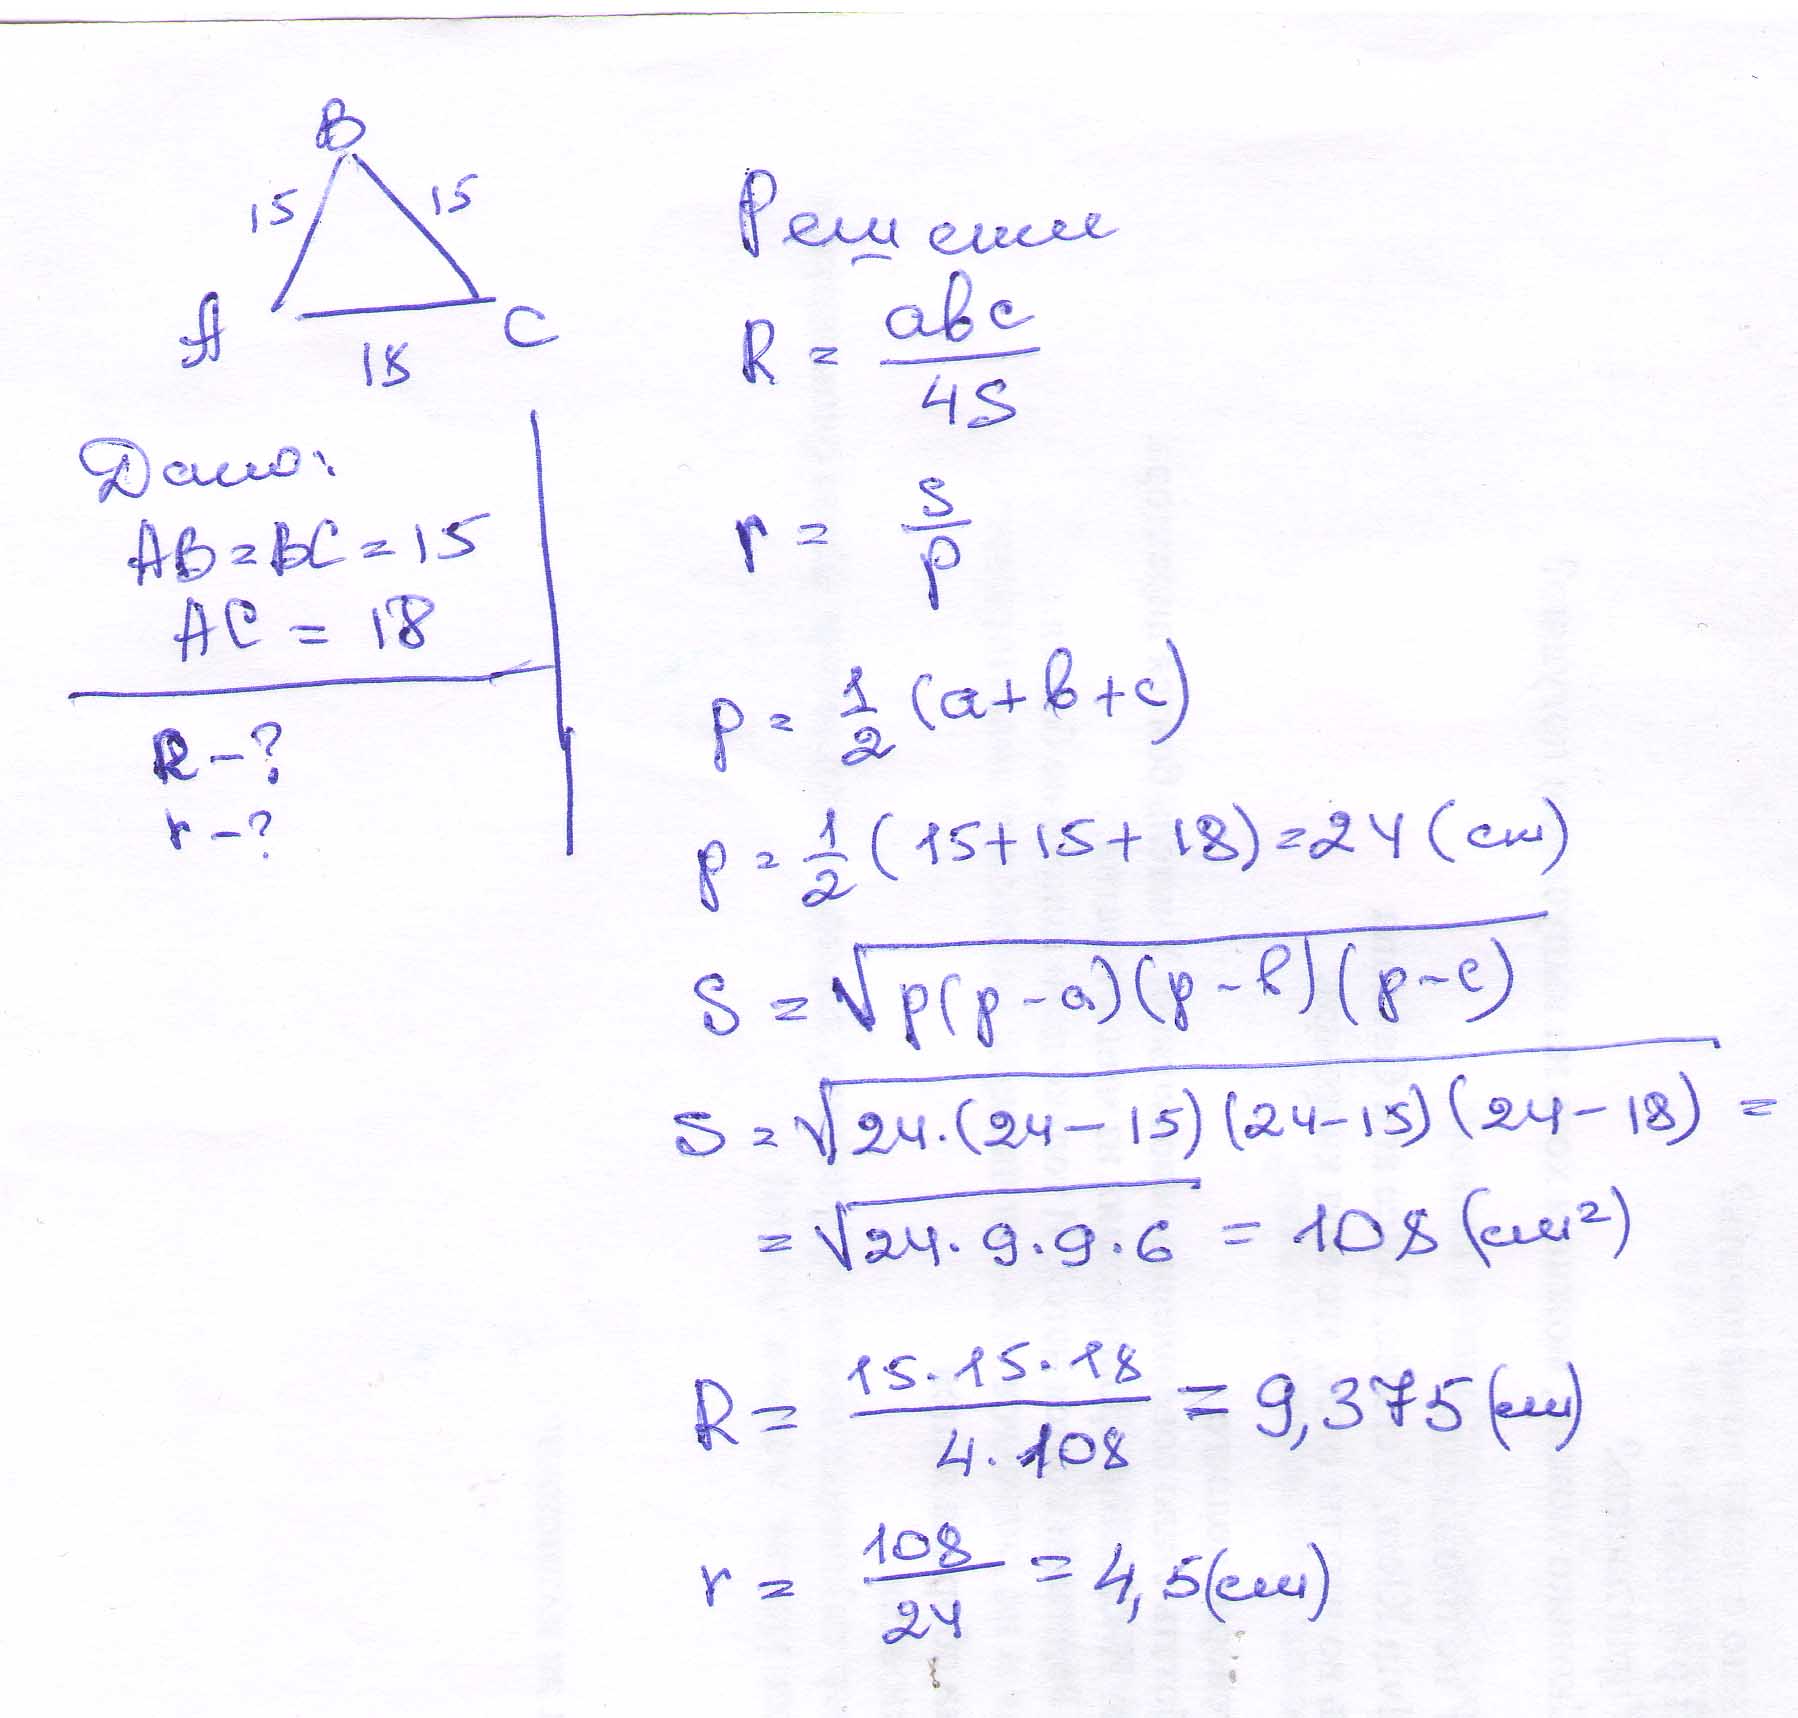 B
15 15
A C
18
Дано:
AB=BC=15
AC = 18
R-?
r-?
Решение
R = abc/4S
r = S/p
p = 1/2 (a+b+c)
p = 1/2 (15+15+18)=24 (см)
S = √p(p-a)(p-b)(p-c)
S = √24·(24-15)(24-15)(24-18) =
= √24·9·9·6 = 108 (см²)
R = 15·15·18/4·108 = 9,375 (см)
r = 108/24 = 4,5(см)